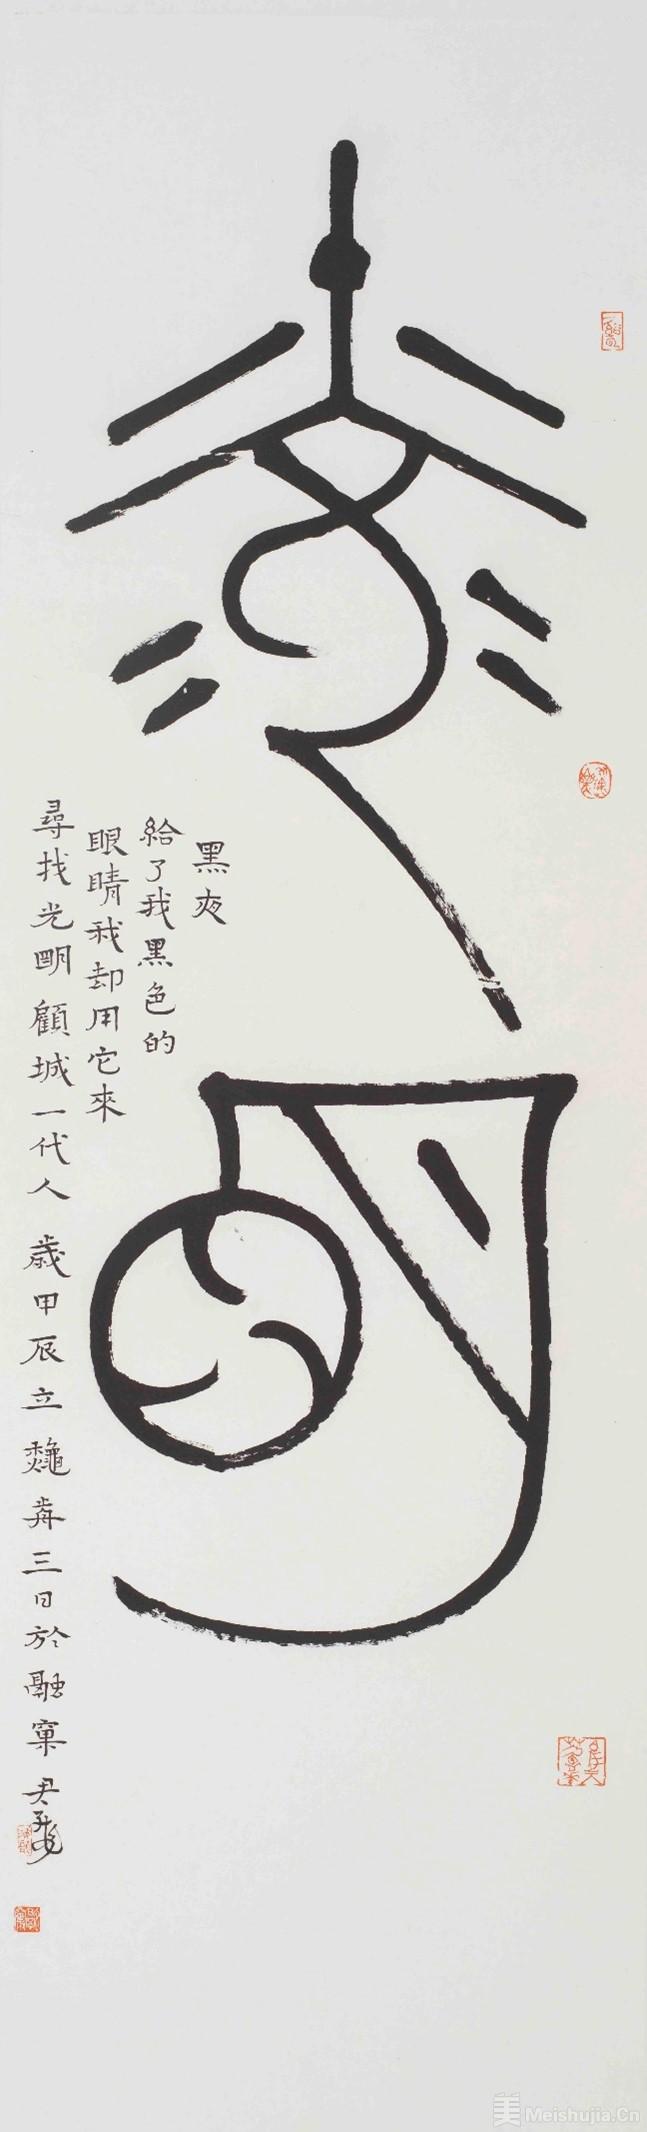 朙
黑夜
給了我黑色的
眼睛我却用它來
尋找光朙顧城一代人歲甲辰立龝歬三日於融窠尹
Meishujia.Cn